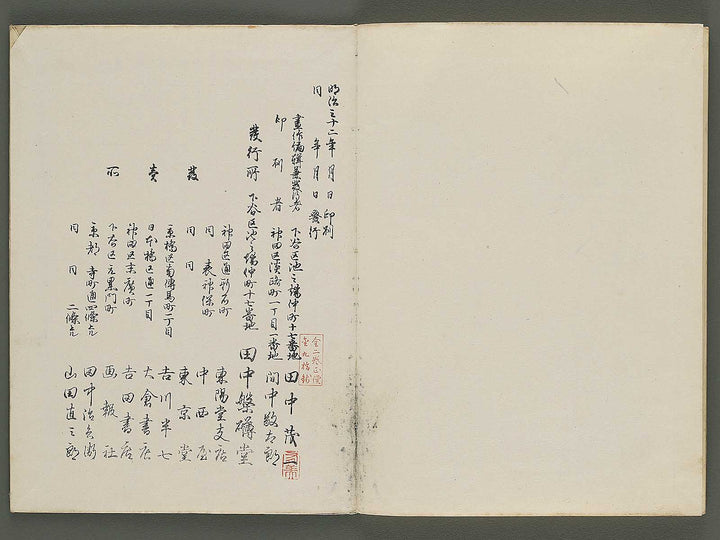 明治三十二年 月 日 印刷
同 年 月 日 發行
畫作編輯兼發行者 下谷区池之端仲町十七番地 田中茂
印刷者 神田区淡路町一丁目一番地 間中数太郎
發行所 下谷区池之端仲町十七番地 田中磐礴堂
發賣所
神田区通新石町 東陽堂支店
同 表神保町 中西屋
同 同 東京堂
京橋区南傳馬町一丁目 吉川半七
日本橋区通一丁目 大倉書店
神田区末廣町 吉田書店
下谷区元黒門町 画報社
京都 寺町通四條上 田中治兵衛
同 同 二條上 山田直三郎